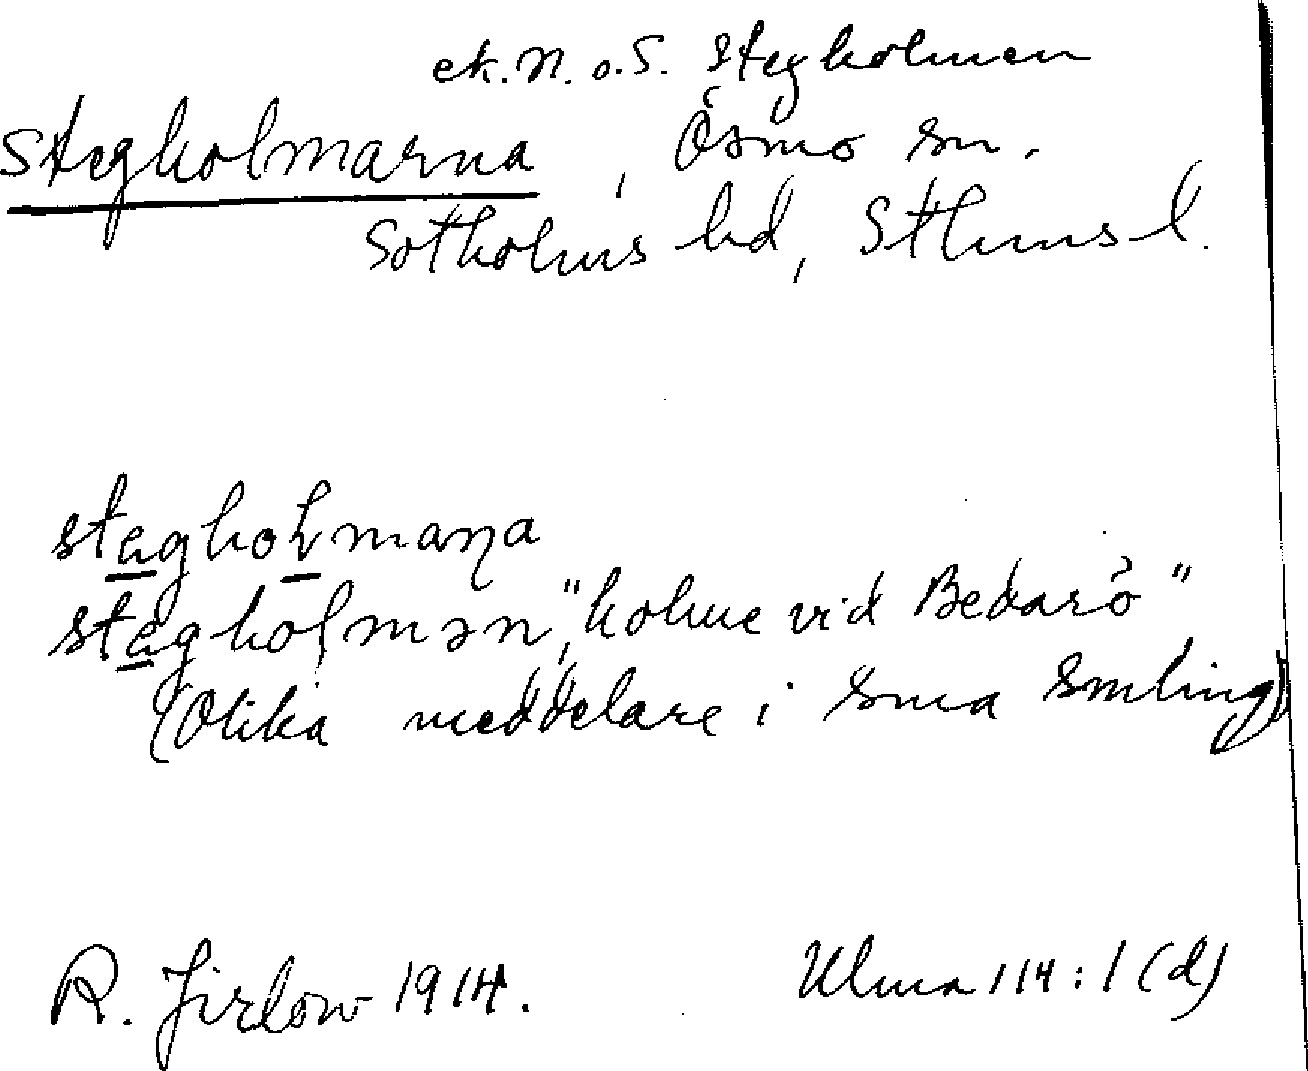 ek. N. o. S. Stegholmen
Stegholmarna, Ösmo sn.
Sotholms hd, Sthms l.
stegholmaṇa
stegholmən, "holme vid Bedarö"
(Olika meddelare i sma smling)
R. Jirlow 1914.
Ulma 114:1 (d)